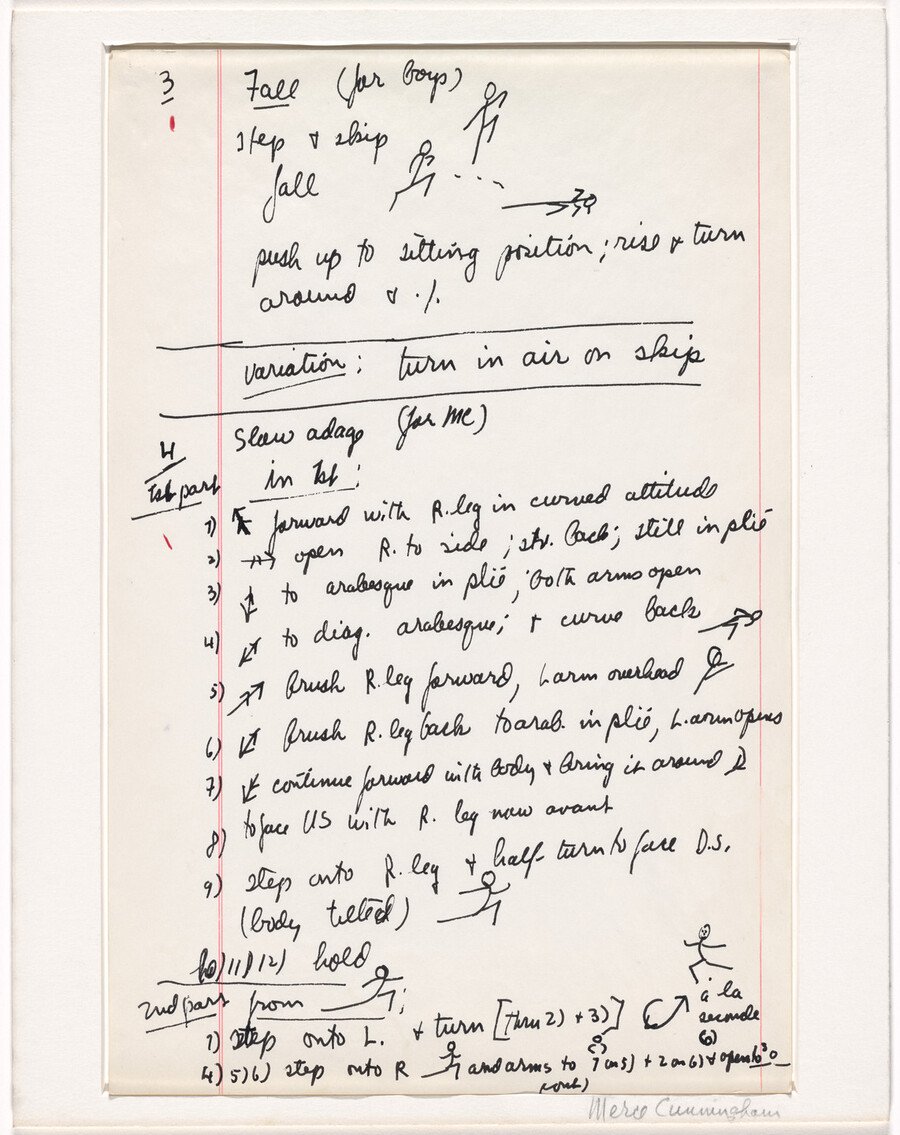 3 Fall (for boys)
step & skip
fall
push up to sitting position; rise & turn
around & ./.
variation: turn in air on skip
4 Slow adage (for MC)
1st part in 1st:
1) forward with R. leg in curved attitude
2) open R. to side; str. back; still in plié
3) to arabesque in plié; both arms open
4) to diag. arabesque; & curve back
5) brush R. leg forward, L arm overhead
6) brush R. leg back to arab. in plié, L. arm opens
7) continue forward with body & bring it around
8) to face US with R. leg now avant
9) step onto R. leg & half-turn to face D.S.
(body tilted)
10) 11) 12) hold
2nd part from ;
1) step onto L. & turn [thru 2) + 3)] à la
seconde
6)
4) 5) 6) step onto R and arms to 1 on 5) + 2 on 6) & open to
Merce Cunningham